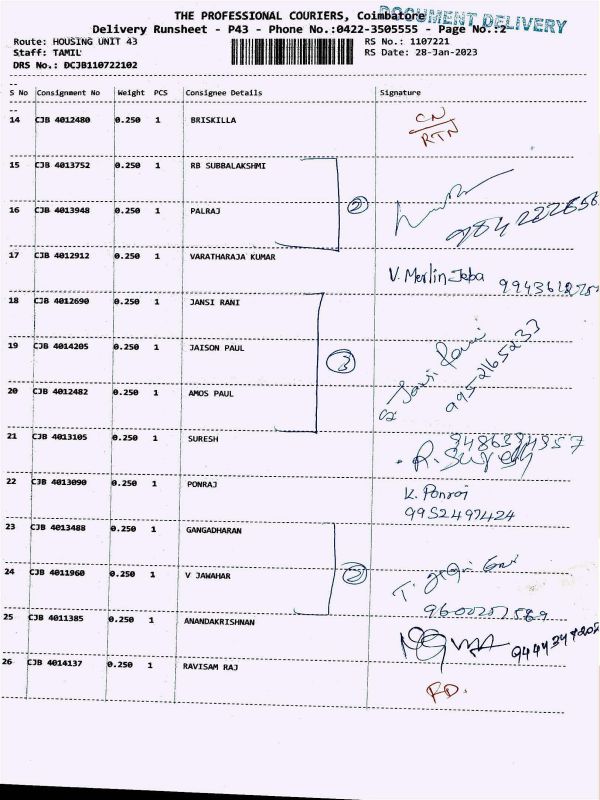 THE PROFESSIONAL COURIERS, Coimbatore
DOCUMENT DELIVERY
Delivery Runsheet - P43 - Phone No.:0422-3505555 - Page No.:2
Route: HOUSING UNIT 43 RS No.: 1107221
Staff: TAMIL RS Date: 28-Jan-2023
DRS No.: DCJB110722102
S No Consignment No Weight PCS Consignee Details Signature
14 CJB 4012480 0.250 1 BRISKILLA CN
RTN
15 CJB 4013752 0.250 1 RB SUBBALAKSHMI
2
16 CJB 4013948 0.250 1 PALRAJ
17 CJB 4012912 0.250 1 VARATHARAJA KUMAR V. Merlin Jeba
18 CJB 4012690 0.250 1 JANSI RANI
19 CJB 4014205 0.250 1 JAISON PAUL Jansi Rani 9952165233
3
20 CJB 4012482 0.250 1 AMOS PAUL
21 CJB 4013105 0.250 1 SURESH R. Suresh
22 CJB 4013090 0.250 1 PONRAJ K. Ponraj
9952497424
23 CJB 4013488 0.250 1 GANGADHARAN
2
24 CJB 4011960 0.250 1 V JAWAHAR
25 CJB 4011385 0.250 1 ANANDAKRISHNAN
26 CJB 4014137 0.250 1 RAVISAM RAJ
RD.